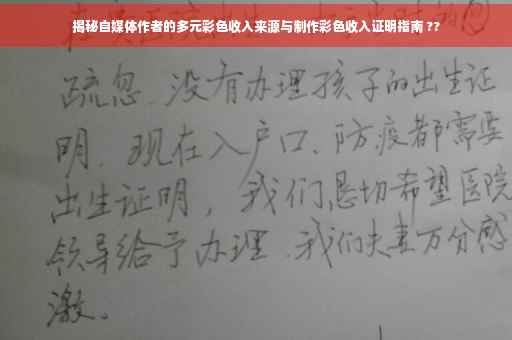 揭秘自媒体作者的多元彩色收入来源与制作彩色收入证明指南 ??
疏忽、没有办理孩子的出生证
明、现在入户口、防疫都需要
出生证明，我们恳切希望医院
领导给予办理、我们夫妻万分感
激。